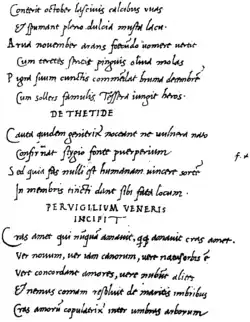 Conterit october lascivis calcibus uvas
Et spumant pleno dulcia musta lacu.
Arva november arans fecundo vomere vertit
Cum teretes sentit pinguis oliva molas
Pigna suum cunctis commendat bruma decembrem
Cum sollers famulis Tessera iungit heros.
DE THETIDE
Cauta quidem genitrix noceant ne vulnera nato
Confirmat stygio fonte puerperium
f. a
Sed quia fas nulli est humanam vincere sortem
In membris tincti dant sibi fata locum.
PERVIGILIUM VENERIS
INCIPIT
Cras amet qui nunquam amavit, quique amavit cras amet.
Ver novum, ver iam canorum, vere natus orbis est
Vere concordant amores, vere nubunt alites
Et nemus comam resolvit de maritis imbribus
Cras amorum copulatrix inter umbras arborum